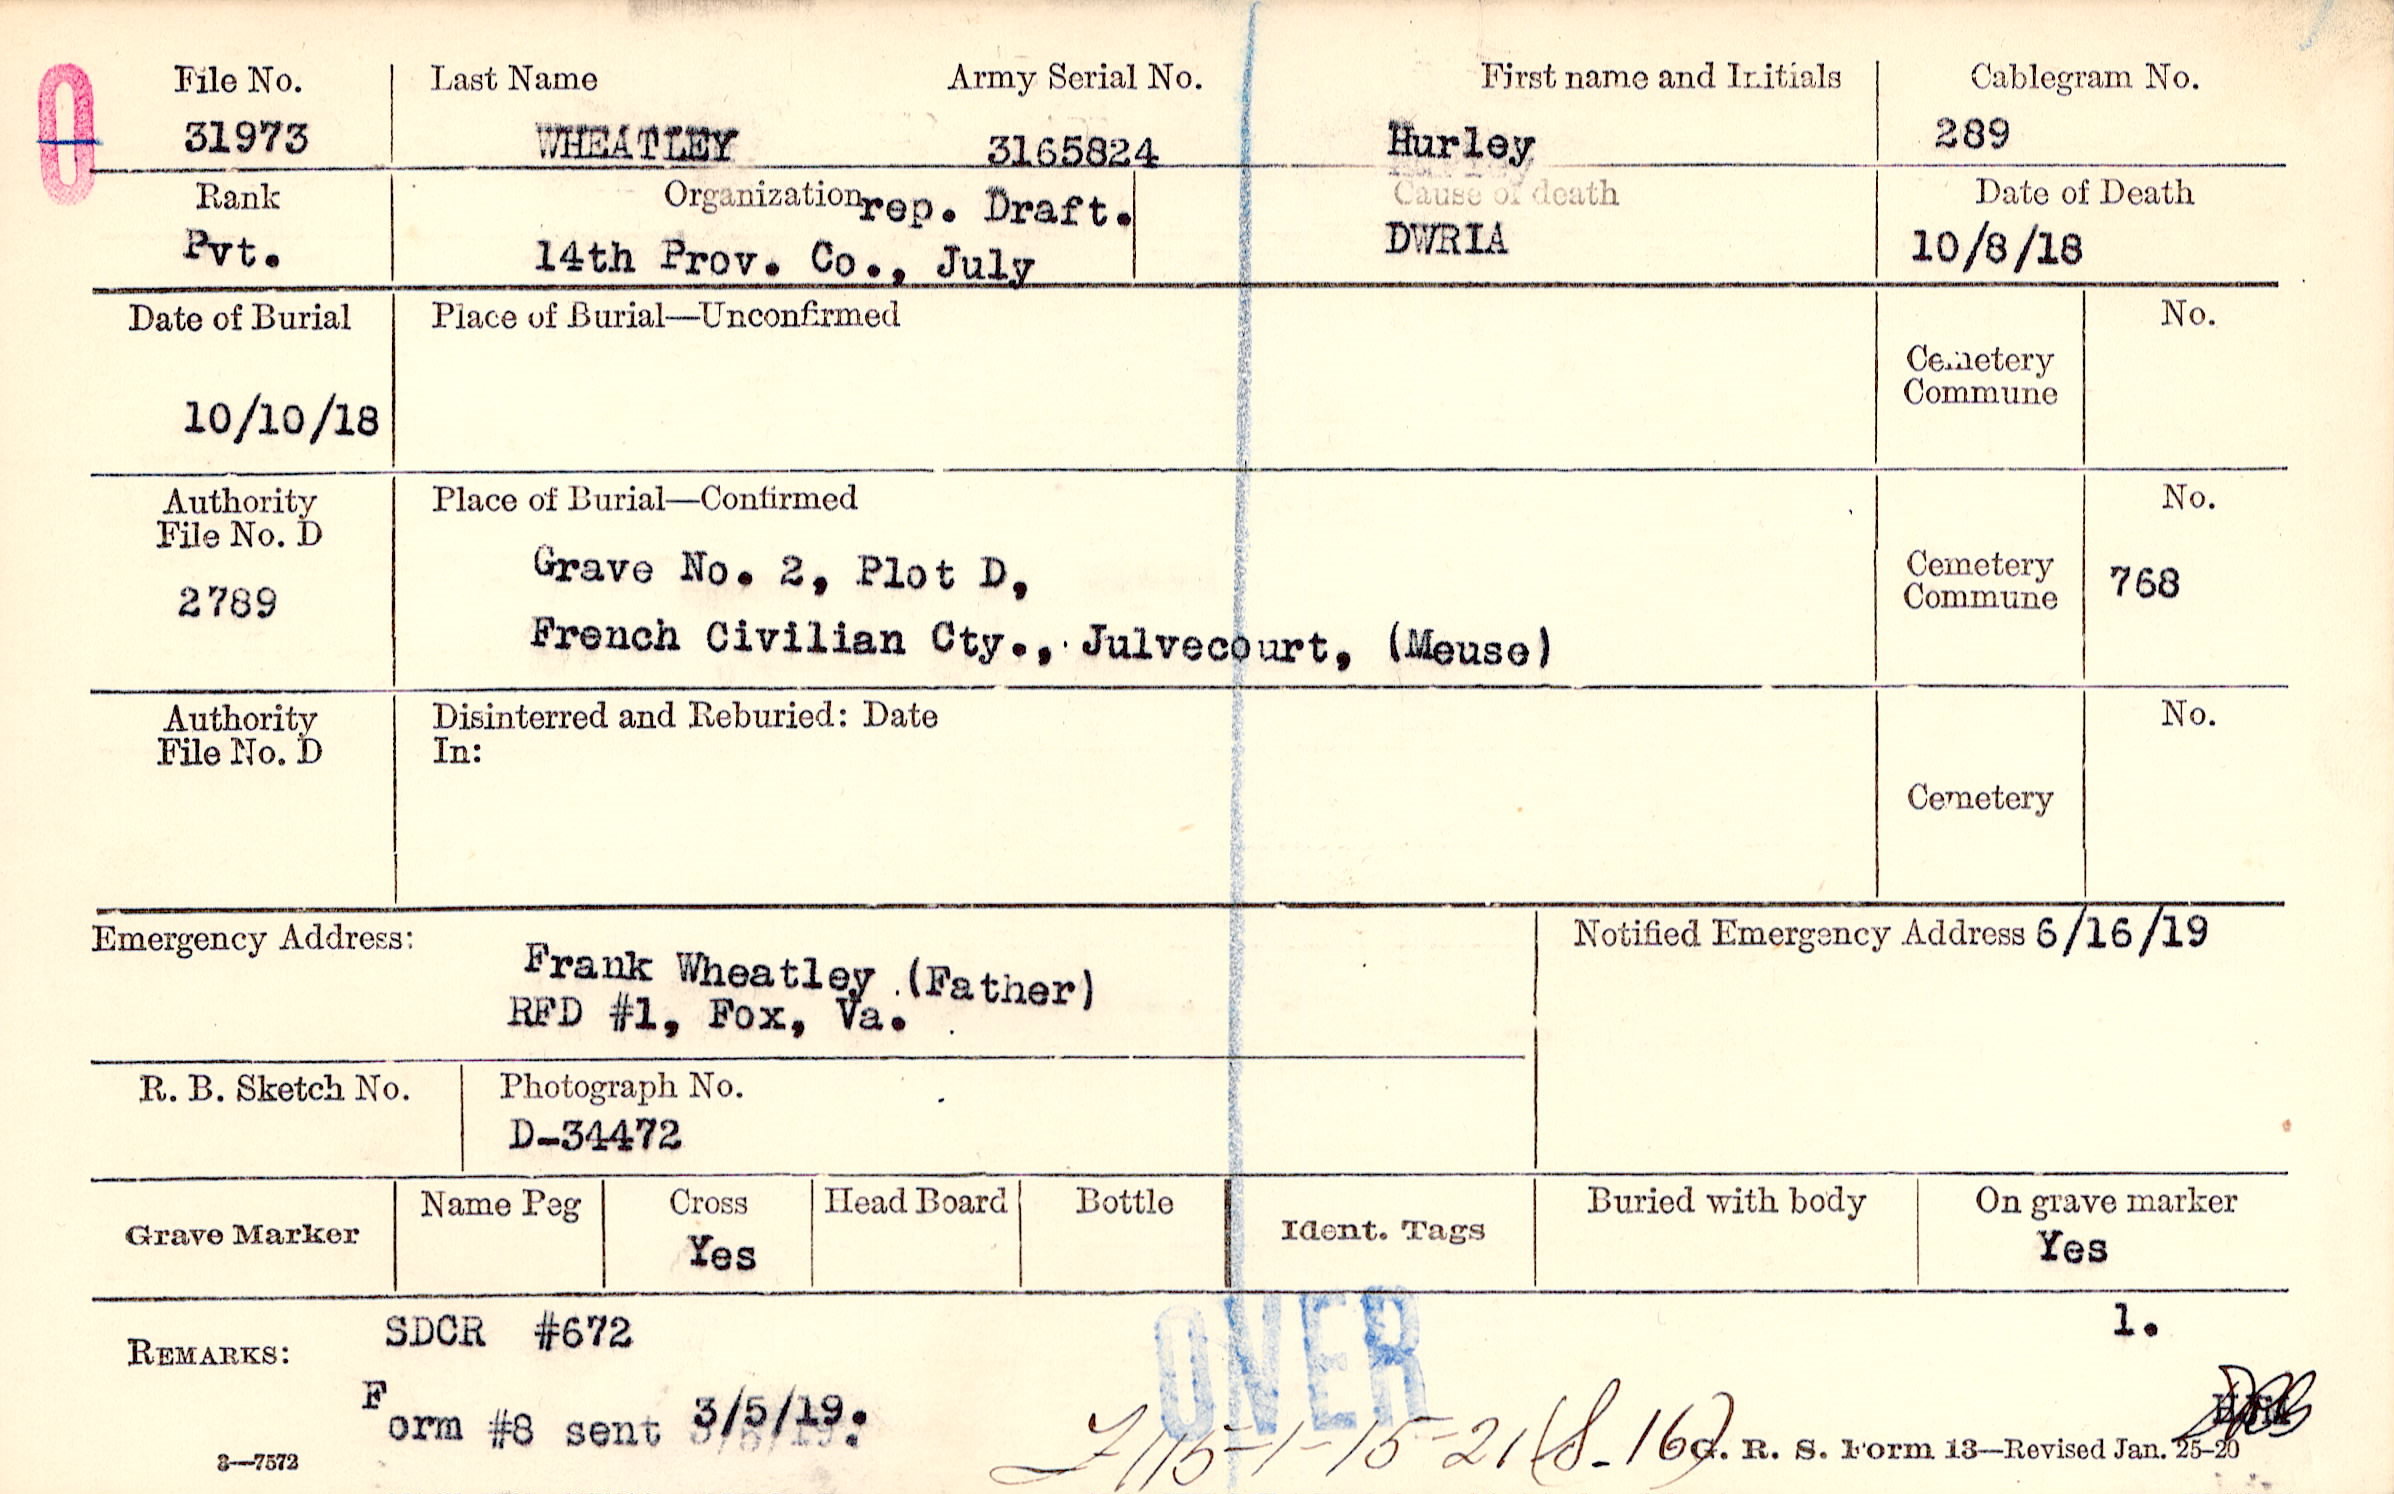 0
File No. Last Name Army Serial No. First name and Initials Cablegram No.
31973 WHEATLEY 3165824 Hurley 289
Rank Organization rep. Draft. Cause of death Date of Death
Pvt. 14th Prov. Co., July DWRIA 10/8/18
Date of Burial Place of Burial—Unconfirmed No.
Cemetery
Commune
10/10/18
Authority Place of Burial—Confirmed No.
File No. D
Grave No. 2, Plot D, Cemetery
2789 Commune 768
French Civilian Cty., Julvecourt, (Meuse)
Authority Disinterred and Reburied: Date No.
File No. D In:
Cemetery
Emergency Address: Notified Emergency Address 6/16/19
Frank Wheatley (Father)
RFD #1, Fox, Va.
R. B. Sketch No. Photograph No.
D-34472
Name Peg Cross Head Board Bottle Buried with body On grave marker
Grave Marker Yes Ident. Tags Yes
SDCR #672 OVER 1.
REMARKS:
Form #8 sent 3/5/19.
3—7572 G. R. S. Form 13—Revised Jan. 25-20